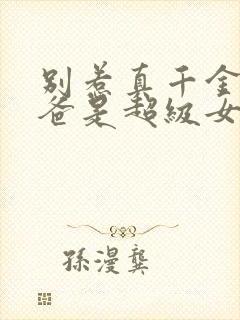 别惹真千金
爸是超级女
孫漫龔